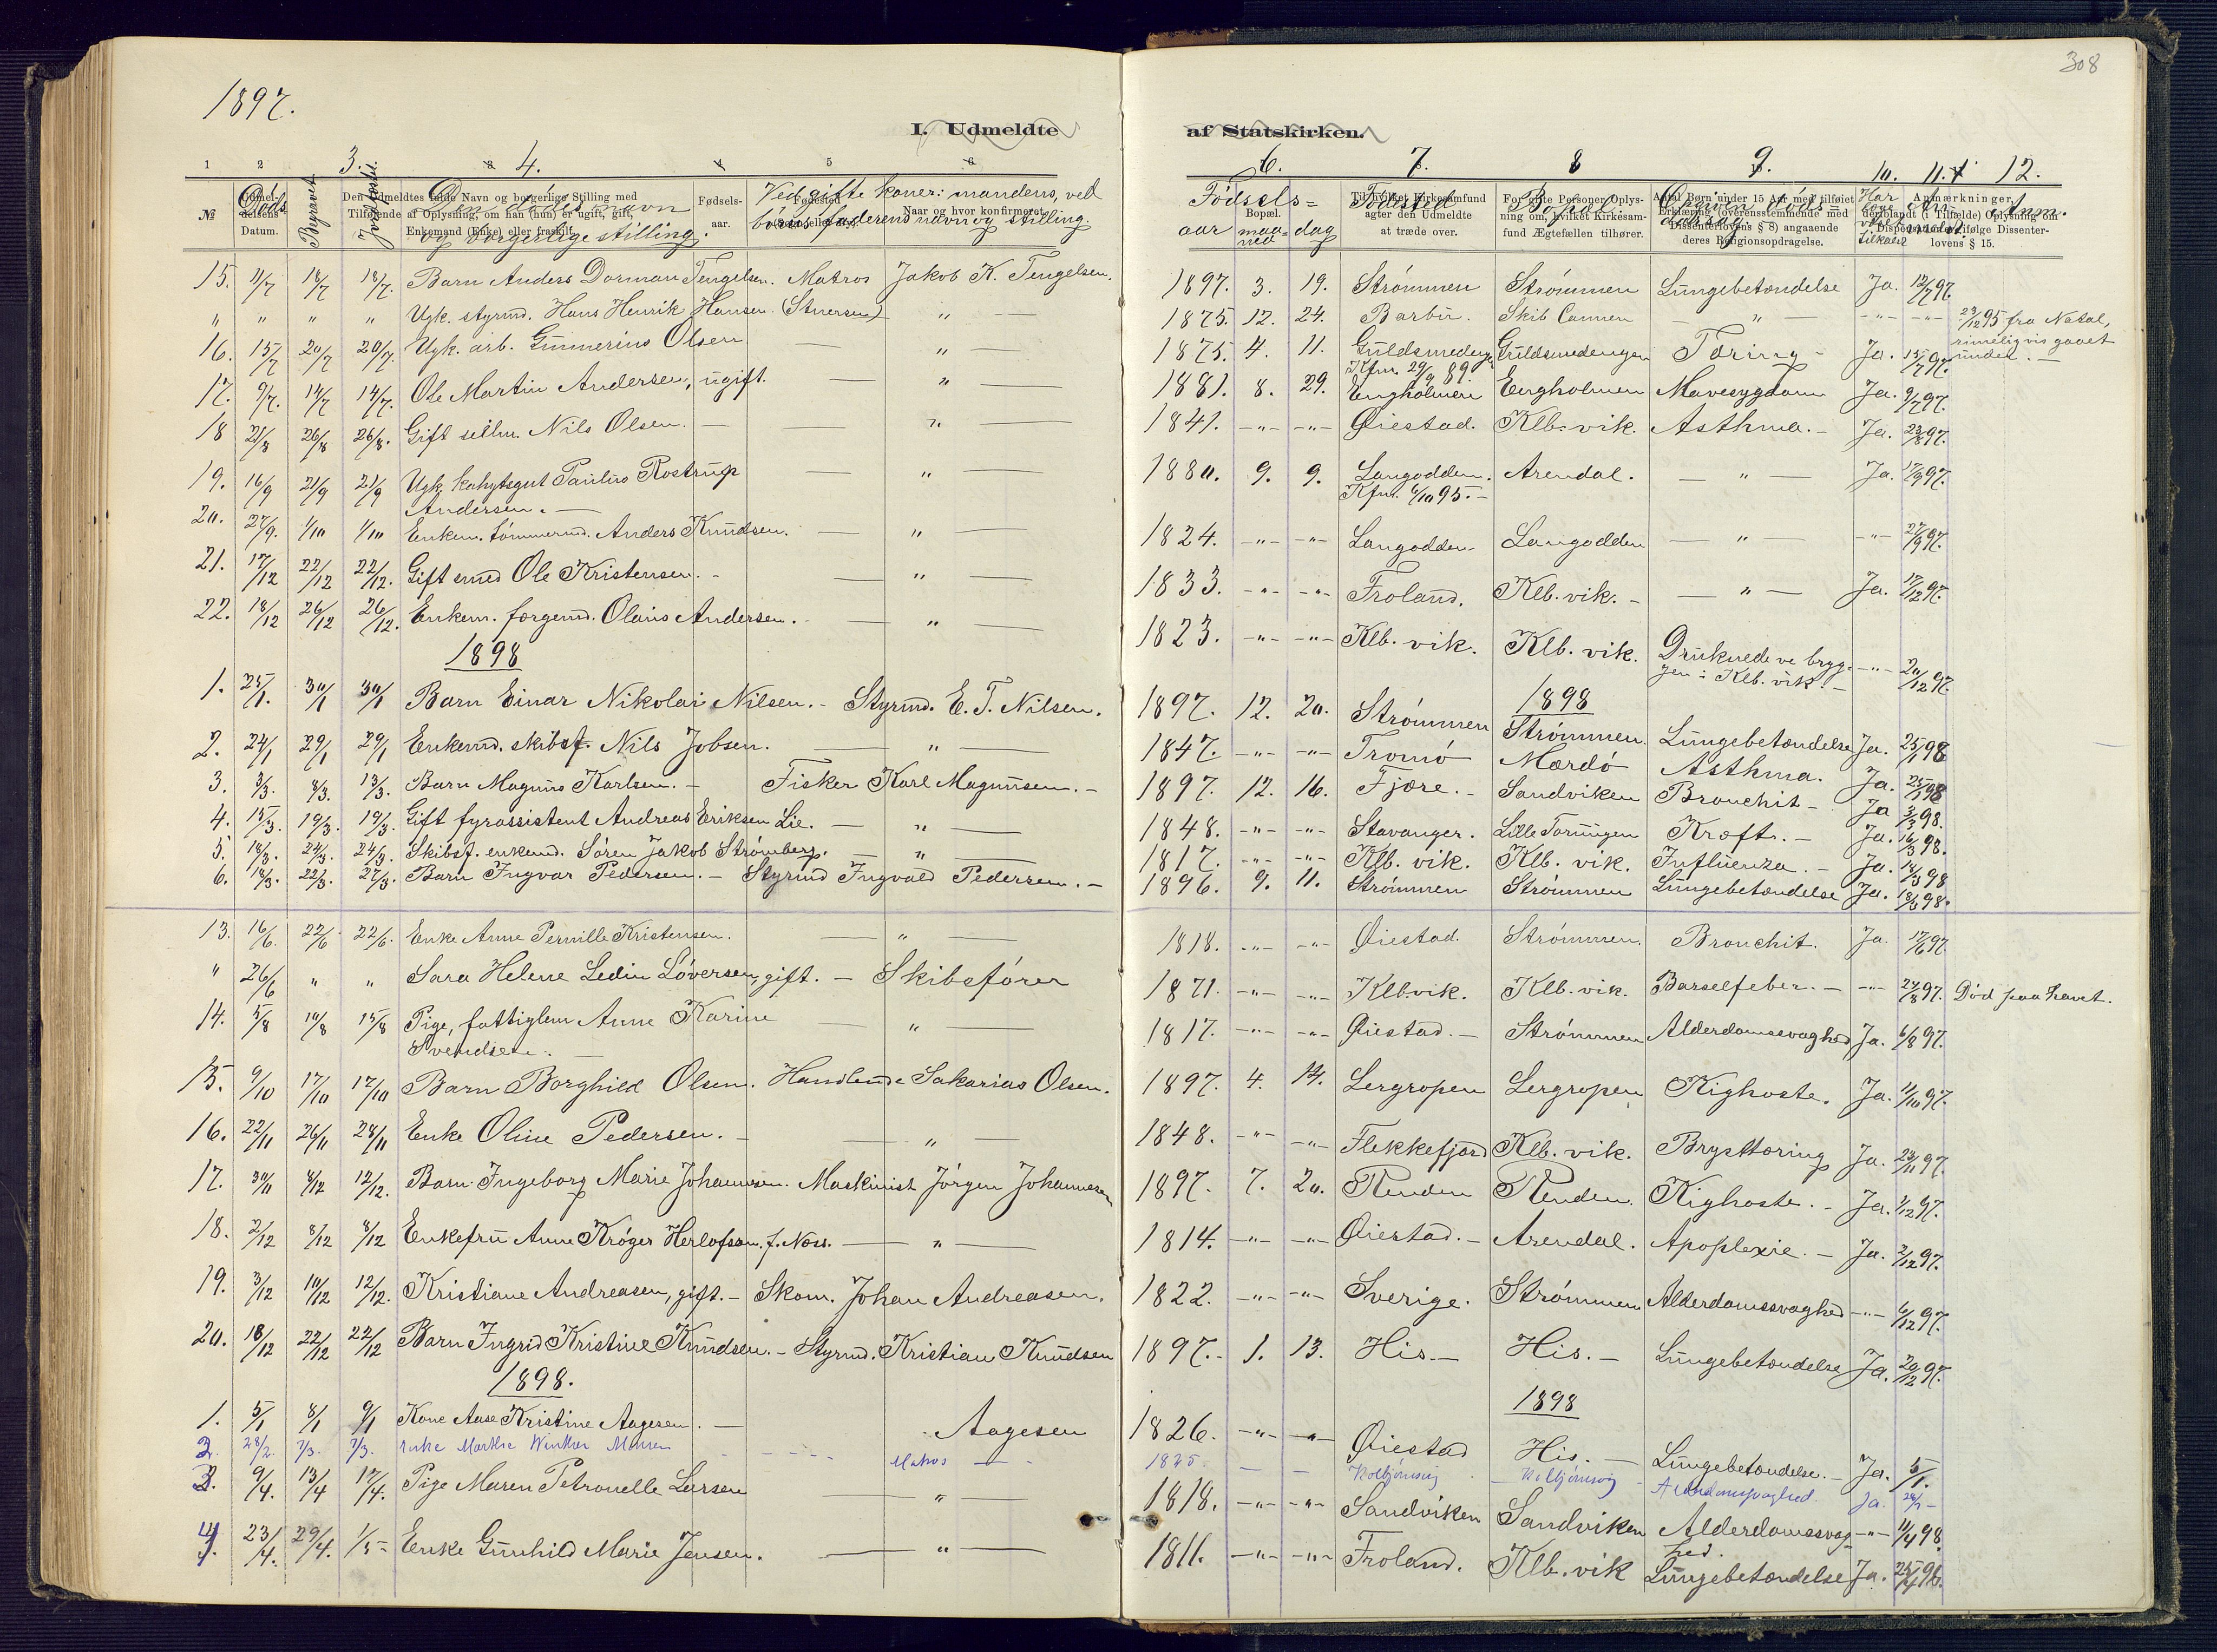 308
1897.
I. Udmeldte af Statskirken.
1 2 3. 4. 5 6. 7. 8 9. 10. 11. 12.
№ Døds Datum. Begravet Jordfæstet. Den dødes navn og borgerlige stilling. Ved gifte koner: mandens, ved børn faderens navn og stilling. Fødsels= aar maaned dag Fødested Bopæl Anm.
15. 11/7 18/7 18/7. Barn Anders Dorman Tengelsen. Matros Jakob K. Tengelsen. 1897. 3. 19. Strømmen Strømmen Lungebetændelse Ja. 12/7 97.
" " " " Ugk. styrmd. Hans Henrik Hansen (Stuersen) — " — 1875. 12. 24. Barbu. Skib Canmen — " — -"- -"- 23/12 95 fra Natal, rimeligvis gaaet under. —
16. 15/7 20/7 20/7. Ugk. arb. Gunnerius Olsen — " — 1875. 4. 11. Guldsmedengen Guldsmedengen Tæring - Ja. 15/7 97.
Kfm. 29/9 89.
17. 9/7. 14/7 14/7. Ole Martin Andersen, ugift. — " — 1881. 8. 29. Engholmen Engholmen Mavesygdom Ja. 9/7 97.
18 21/8 26/8 26/8. Gift sellm. Nils Olsen. — " — 1841. -"- -"- Øiestad. Klb. vik. Asthma. - Ja. 23/8 97.
19. 16/9 21/9 21/9 Ugk. kahytsgut Paulus Rostrup — " — 1880. 9. 9. Langodden. Arendal. — " — Ja. 17/9 97.
Andersen. — Kfm. 6/10 95. -
20. 27/9. 1/10 1/10 Enkem. tømmermd. Anders Knudsen. — " — 1824. -"- -"- Langodden Langodden — " — -"- 27/9 97.
21. 17/12 22/12 22/12. Gift smed Ole Kristensen. - — " — 1833. -"- -"- Froland. Klb. vik. - — " — Ja. 17/12 97.
22. 18/12 26/12 26/12. Enkem. færgemd. Olaus Andersen. - — " — 1823. -"- -"- Klb. vik. Klb. vik. Druknede ve bryg- -"- 20/12 97.
gen i Klb. vik. -
1898 1898
1. 25/1. 30/1 30/1 Barn Einar Nikolai Nilsen. - Styrmd. E. T. Nilsen. 1897. 12. 20. Strømmen Strømmen. Lungebetændelse Ja. 25/1 98
2. 24/1 29/1 29/1 Enkemd. skibsf. Nils Jobsen. — " — 1847. -"- -"- Tromø Mærdø Asthma. Ja. 25/1 98
3. 3/3. 8/3. 13/3. Barn Magnus Karlsen. - Fisker Karl Magnusen. - 1897. 12. 16. Fjære. - Sandviken Bronchit - Ja 3/3 98.
4. 15/3. 19/3. 19/3. Gift fyrassistent Andreas Eriksen Lie. — " — 1848. -"- -"- Stavanger. Lille Torungen Kræft. - Ja. 16/3 98.
5. 18/3. 24/3. 24/3. Skibsf. enkemd. Søren Jakob Strømberg. — " — 1817. -"- -"- Klb. vik. Klb. vik. Influenza. - Ja. 18/3 98
6. 18/3. 22/3. 27/3. Barn Ingvar Pedersen. - Styrmd Ingvald Pedersen. - 1896. 9. 11. Strømmen Strømmen Lungebetændelse Ja. 18/3 98.
13. 16/6. 22/6. 22/6. Enke Anne Pernille Kristensen. — " — 1818. -"- -"- Øiestad. Strømmen. Bronchit. Ja. 17/6 97
" 26/6 " " Sara Helene Ledin Løversen, gift. - Skibsfører 1871. -"- -"- Klb. vik. Klb. vik. Barselfeber. - -"- 24/8 97. Død paa havet.
14. 5/8 10/8 15/8 Pige, fattiglem Anne Karine — " — 1817. -"- -"- Øiestad. - Strømmen Alderdomssvaghed Ja. 6/8 97.
Svendsen. —
15. 9/10 17/10 17/10 Barn Borghild Olsen. Handlende Sakarias Olsen. 1897. 4. 14. Lergropen Lergropen Kighoste. Ja. 11/10 97.
16. 22/11 26/11 28/11 Enke Oline Pedersen. - — " — 1848. -"- -"- Flekkefjord Klb. vik. Brysttæring Ja. 23/11 97.
17. 30/11 4/12 12/12. Barn Ingeborg Marie Johannesen. Maskinist Jørgen Johannesen 1897. 7. 20. Renden Renden. Kighoste. - Ja. 1/12 97.
18. 2/12 8/12 8/12 Enkefru Anne Krøger Herlofson, f. Næss. — " — 1814. -"- -"- Øiestad. - Arendal. Apoplexie. - Ja. 2/12 97.
19. 3/12 10/12 12/12. Kristiane Andreasen, gift. - Skom. Johan Andreasen. 1822. -"- -"- Sverige. Strømmen Alderdomssvaghed -"- 6/12 97.
20. 18/12 22/12 22/12 Barn Ingrid Kristine Knudsen. - Styrmd. Kristian Knudsen 1897. - 1. 13. His. — His. — Lungebetændelse Ja. 20/12 97.
1898. 1898
1. 5/1 8/1 9/1 Kone Aase Kristine Aagesen. — Aagesen 1826. -"- -"- Øiestad His. — Lungebetændelse. - Ja. 5/1.
2. 28/2. 7/3. 7/3. Enke Marthe Matros — 1835. — — Kolbjørnsvig - Kolbjørnsvig - Alderdomsvaghed. Ja.
3. 9/4. 13/4 17/4. Pige Maren Petronelle Larsen — " — 1818. -"- -"- Sandviken Sandviken Alderdomssvag- -"- 11/4 98.
hed.
4. 23/4. 29/4. 1/5 - Enke Gunhild Marie Jensen. — " — 1811. -"- -"- Froland. Klb. vik Lungebetændelse Ja. 25/4 98.